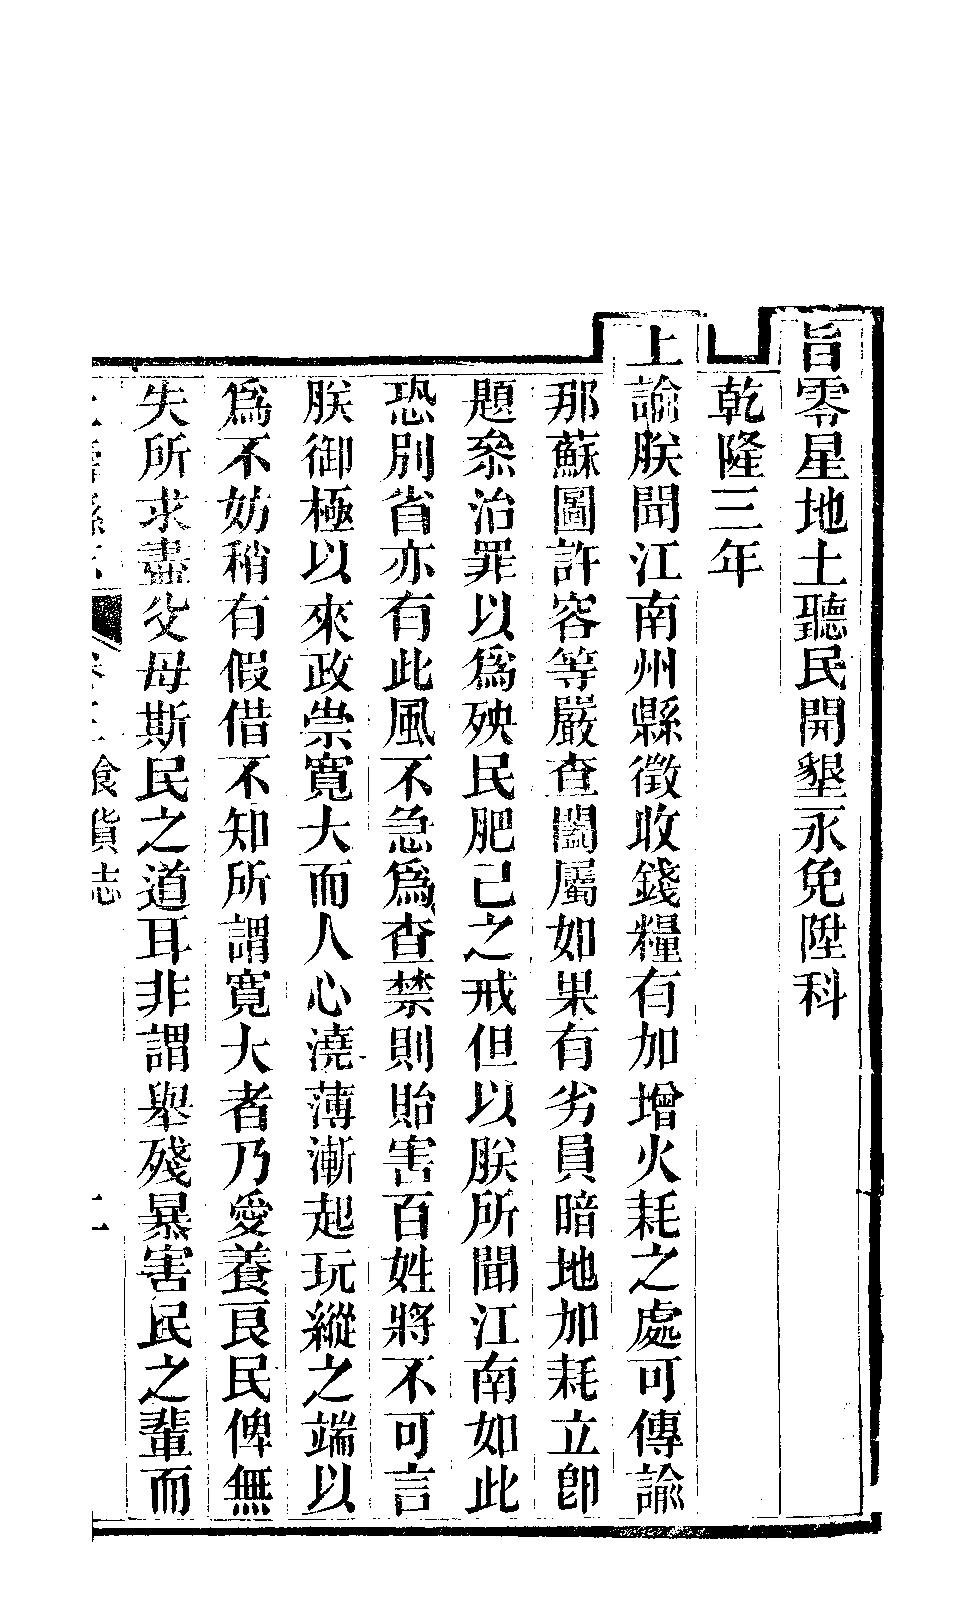 旨零星地土聽民開墾永免陞科
乾隆三年
上諭朕聞江南州縣徵收錢糧有加增火耗之處可傳諭
那蘇圖許容等嚴查闔屬如果有劣員暗地加耗立卽
題叅治罪以爲殃民肥己之戒但以朕所聞江南如此
恐別省亦有此風不急爲查禁則貽害百姓將不可言
朕御極以來政崇寬大而人心澆薄漸起玩縱之端以
爲不妨稍有假借不知所謂寬大者乃愛養良民俾無
失所求盡父母斯民之道耳非謂舉殘暴害民之輩而
食貨志